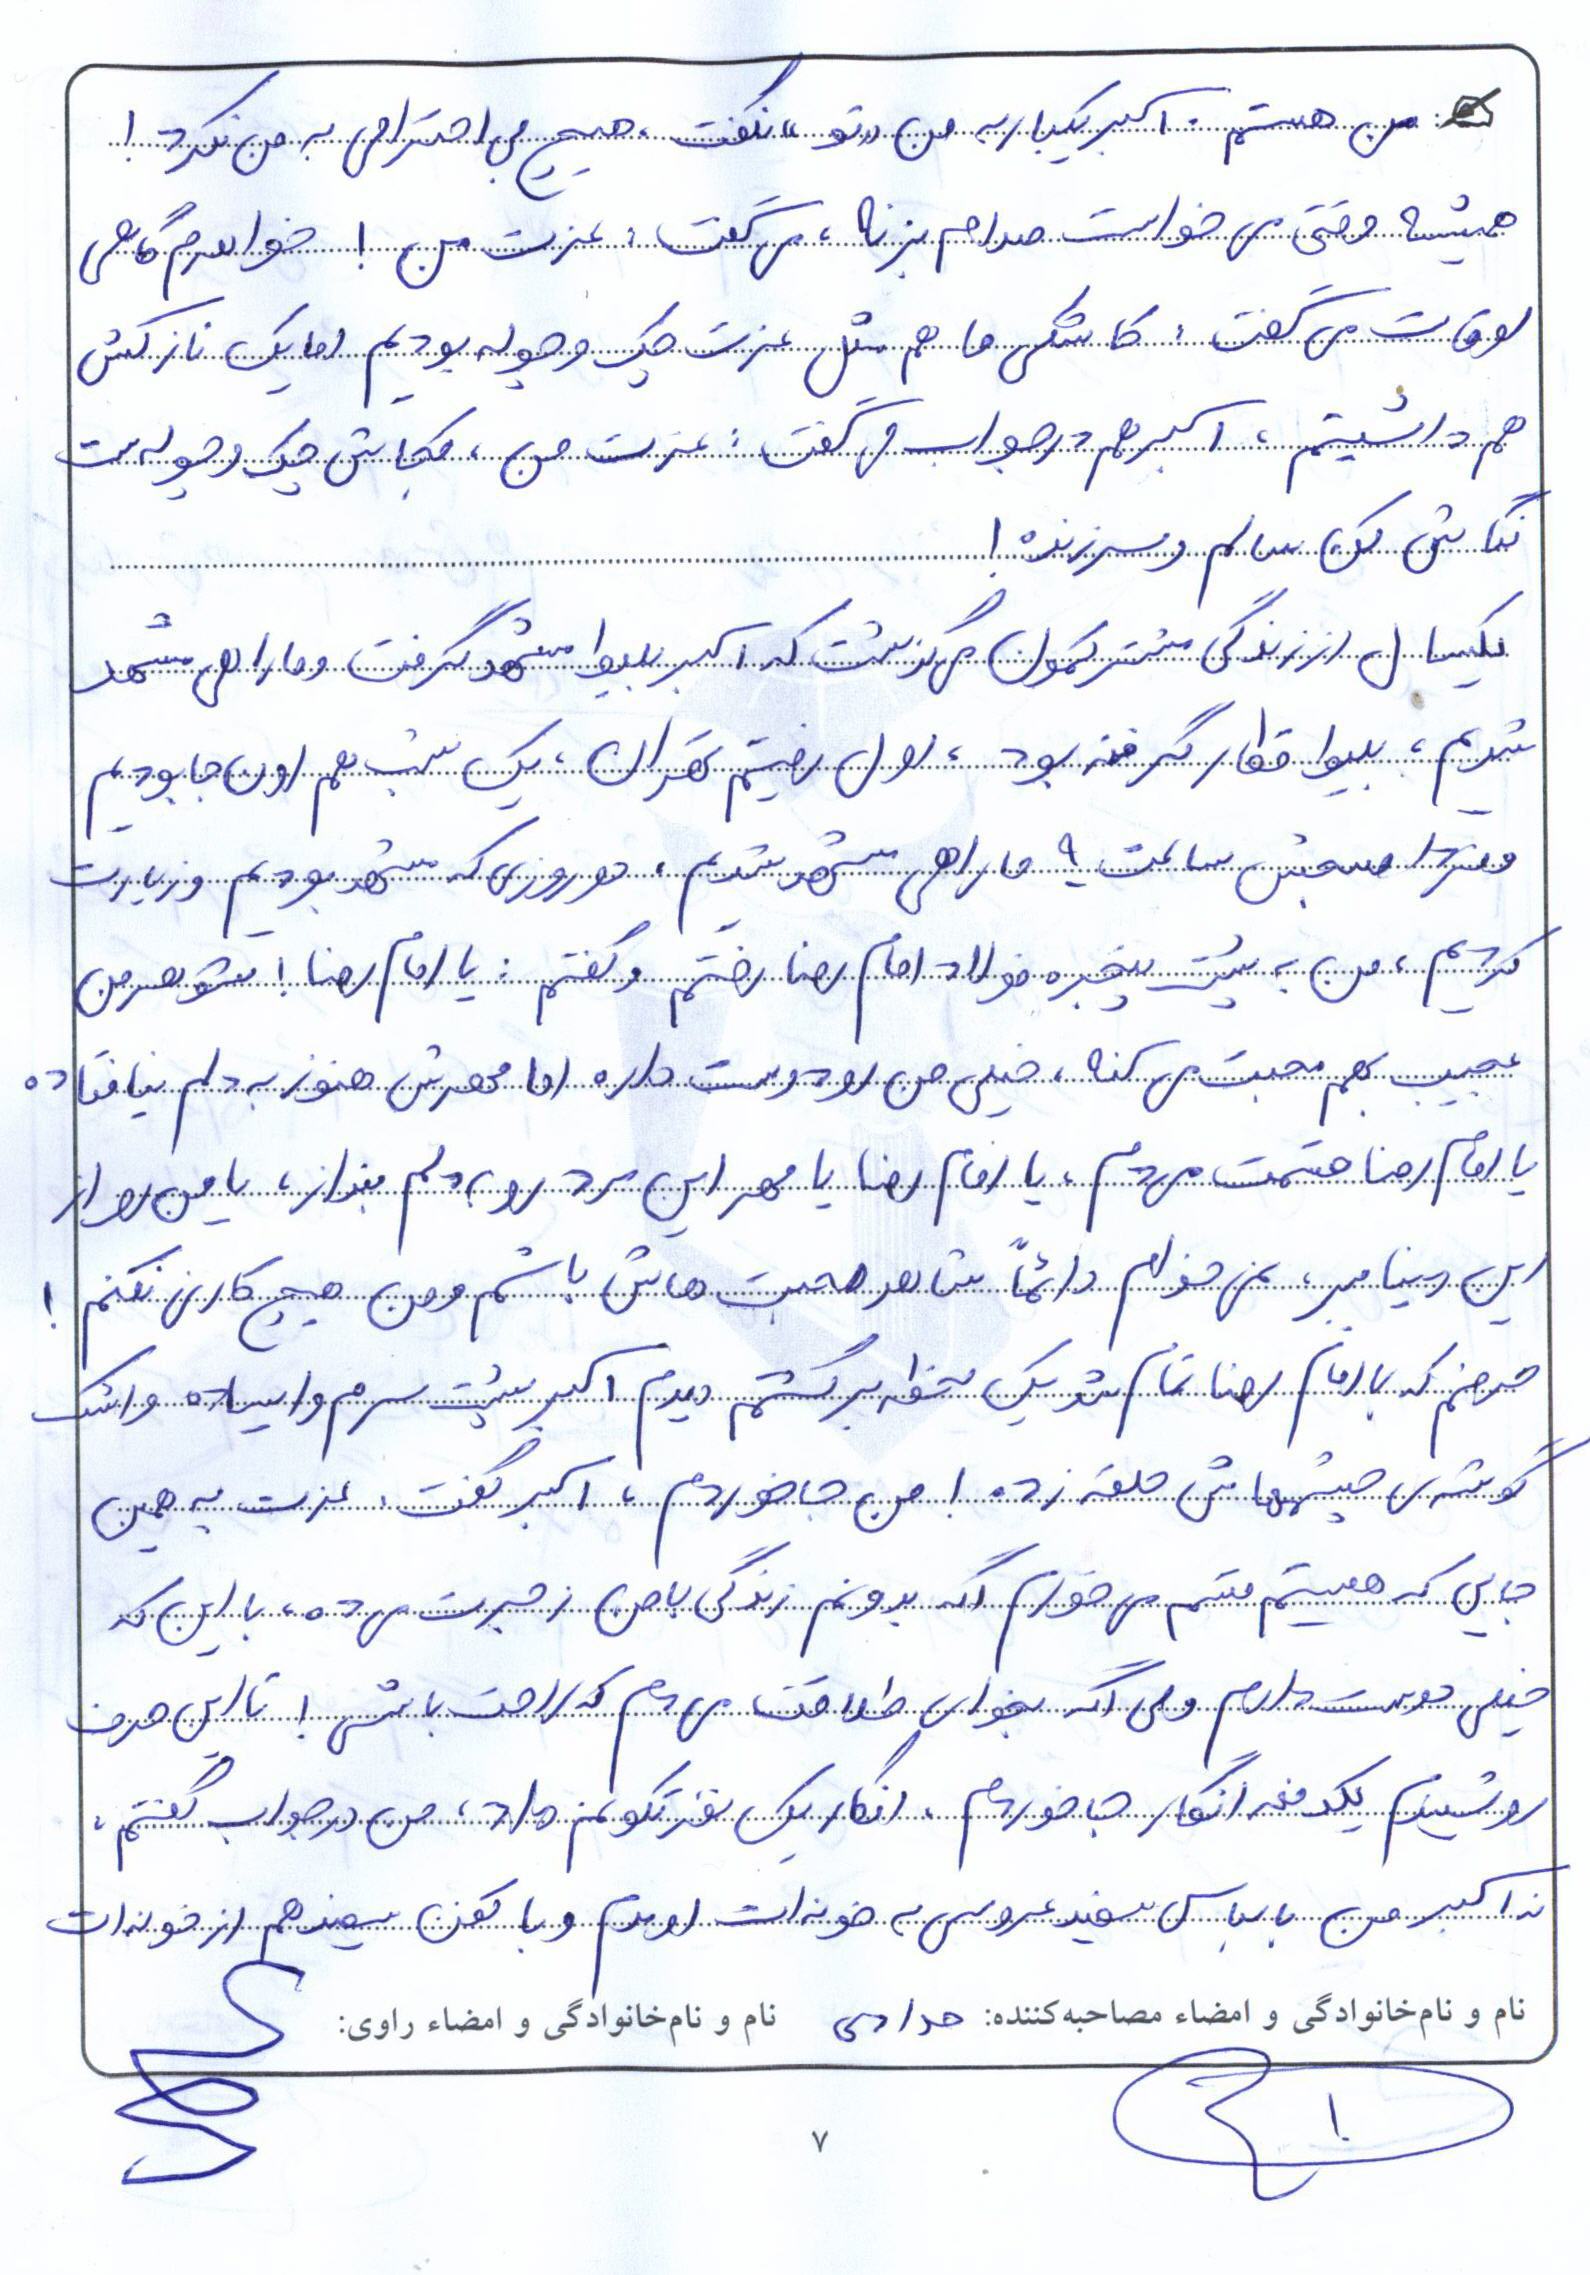 من هستم. اکبر یکبار به من «تو» نگفت، هیچ بی احترامی به من نکرد!
همیشه وقتی می خواست صدام بزنه، می گفت: عزت من! خواهرم گاهی
اوقات می گفت: کاشکی ما هم مثل عزت چک و چوله بودیم اما یک نازکش
هم داشتیم، اکبر هم در جواب می گفت: عزت من، کجاش چک و چوله ست
نگاش کن سالم و سرزنده!
یکسال از زندگی مشترکمون می گذشت که اکبر بلیط مشهد گرفت و ما راهی مشهد
شدیم، بلیط قطار گرفته بود، اول رفتیم تهران، یک شب هم اون جا بودیم
فردا صبحش ساعت ۹ ما راهی مشهد شدیم، دو روزی که مشهد بودیم و زیارت
کردیم، من به پشت پنجره فولاد امام رضا رفتم و گفتم: یا امام رضا! شوهر من
عجیب بهم محبت می کنه، خیلی من رو دوست داره اما مهرش هنوز به دلم نیافتاده
یا امام رضا قسمت می دم، یا امام رضا یا مهر این مرد رو به دلم بنداز، یا من رو از
این دنیا ببر، نمی خوام دائماً شاهد محبت هاش باشم و من هیچ کاری نکنم!
حرفم که با امام رضا تمام شد یک دفعه برگشتم دیدم اکبر پشت سرم وایساده و اشک
گوشه ی چشمهاش حلقه زده! من جا خوردم، اکبر گفت: عزت به همین
جایی که هستیم قسم می خورم اگه بدونم زندگی با من زجرت می ده، با این که
خیلی دوست دارم ولی اگه بخوای طلاقت می دم که راحت باشی! تا این حرف
رو شنیدم یکدفعه انگار جا خوردم، انگار یک نفر تکونم داد، من در جواب گفتم:
نه اکبر من با لباس سفید عروسی به خونه ات اومدم و با کفن سفید هم از خونه ات
نام و نام‌خانوادگی و امضاء مصاحبه‌کننده: حدادی نام و نام‌خانوادگی و امضاء راوی:
۷